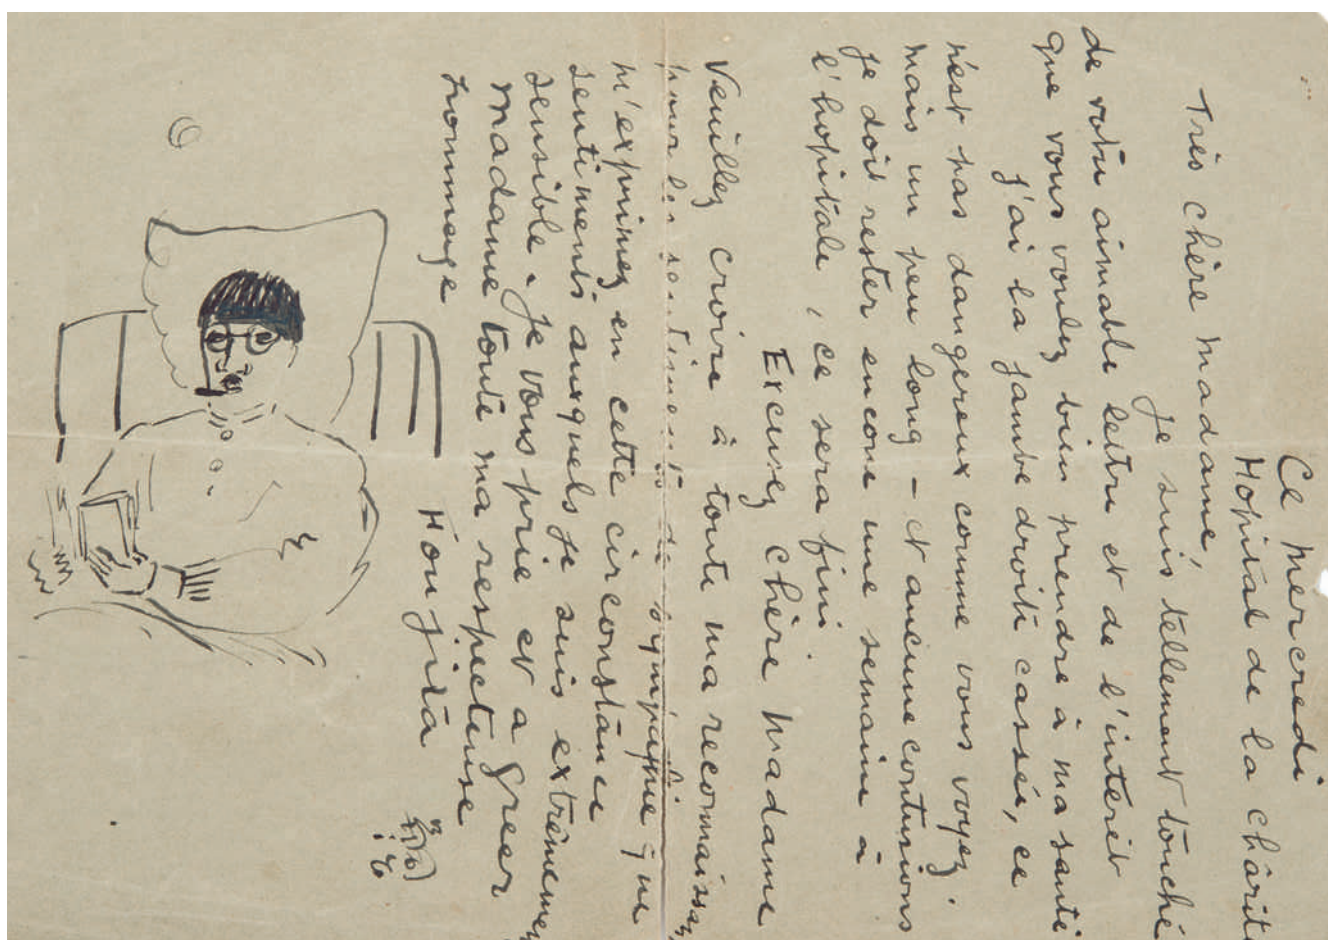 Ce mercredi
Hopital de la chârité
Très chère madame,
Je suis tellement touché
de votre aimable lettre et de l'interêt
que vous voulez bien prendre à ma santé
j'ai la jambe droite cassée, ce
n'est pas dangereux comme vous voyez.
mais un peu long – et aucune contusions
je doit rester encore une semaine à
l'hopitale, ce sera fini
Excusez chère madame
Veuillez croire à toute ma reconnaissan
pour les sentiments de sympathie que
m'exprimez en cette circonstance
sentiments auxquels je suis extrêmemen
sensible. Je vous prie et a greer
madame toute ma respecteuse
hommage
Foujita